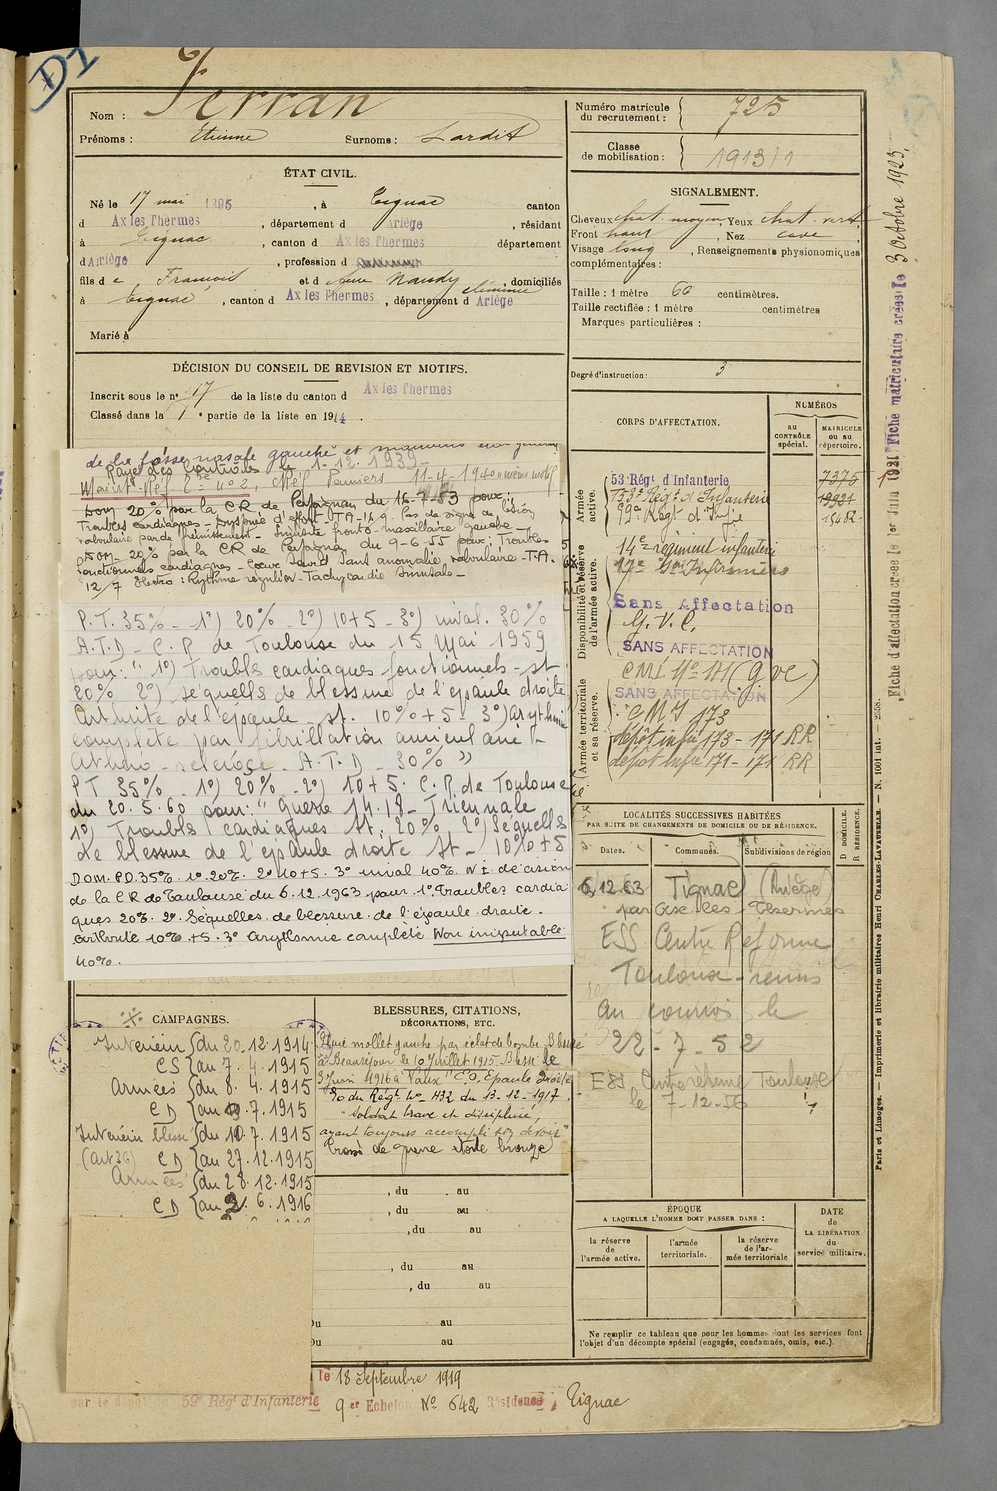 D1
Nom : Ferran
Prénoms : Etienne Surnoms : Lardit
Numéro matricule du recrutement : 725
Classe de mobilisation : 1913/1
ÉTAT CIVIL.
Né le 17 mai 1895, à Tignac canton
d Ax les Thermes, département d Ariège, résidant
à Tignac, canton d Ax les Thermes département
d Ariège, profession d
fils d e François et d Naudy, domiciliés
à Tignac, canton d Ax les Thermes, département d Ariège
Marié à
SIGNALEMENT.
Cheveux chat. moyen, Yeux chat. vert
Front haut, Nez cave,
Visage long, Renseignements physionomiques
complémentaires :
Taille : 1 mètre 60 centimètres.
Taille rectifiée : 1 mètre centimètres
Marques particulières :
Degré d'instruction : 3
DÉCISION DU CONSEIL DE REVISION ET MOTIFS.
Inscrit sous le n° 17 de la liste du canton d Ax les Thermes
Classé dans la 1e partie de la liste en 1914.
de la fosse nasale gauche et
Rayé des le 1-12-1939
Pamiers 11-4-1940 même motif
Dom 20% par la C.R. de Perpignan du 16-7-53 pour :
Troubles cardiaques - Dyspnée d'effort - TA-14-9. Pas de signe de lésion
valvulaire pas de frémissement - Sinusite fronto-maxillaire gauche -
DOM- 20% par la C.R. de Perpignan du 9-6-55 pour : Troubles
fonctionnels cardiaques - Coeur sans anomalie valvulaire - T.A.
12/7 Electro : Rythme régulier - Tachycardie Sinusale -
P.T. 35% - 1°) 20% - 2°) 10+5 - 3°) inval. 30%
A.T.D - C.R. de Toulouse du 15 Mai 1959
pour : " 1°) Troubles cardiaques fonctionnels - st
20% 2°) séquelles de blessure de l'épaule droite
Arthrite de l'épaule - st. 10% + 5 - 3°) Arythmie
complète par fibrillation auriculaire
Athéro - sclérose. A.T.D - 30% "
P.T 35% - 1°) 20% - 2°) 10+5. C.R. de Toulouse
du 20.5.60 pour : " Guerre 14.18 - Triennale
1°) Troubles cardiaques st. 20% 2°) Séquelles
de blessure de l'épaule droite st - 10% + 5
DOM. P.D. 35%. 1° 20%. 2° 10+5. 3° inval 40%. N.I. décision
de la C.R de Toulouse du 6.12.1963 pour 1° Troubles cardia
ques 20%. 2° Séquelles de blessure de l'épaule droite.
arthrite 10% +5. 3° arythmie complète Non imputable
40%.
CORPS D'AFFECTATION.
NUMÉROS
au CONTRÔLE spécial.
MATRICULE ou au répertoire.
Armée active.
53 Régt d'Infanterie 7375
153e Régt d'Infanterie
59e Régt d'Infie
Disponibilité et réserve de l'armée active.
14e régiment infanterie
17e Son Infirmiers
Sans Affectation
G.V.C.
SANS AFFECTATION
Armée territoriale et sa réserve.
CMI N° 171 (gvc)
SANS AFFECTATION
CMI 173
dépôt infie 173 - 171 RR
dépôt Infie 171 - 171 RR
LOCALITÉS SUCCESSIVES HABITÉES
PAR SUITE DE CHANGEMENTS DE DOMICILE OU DE RÉSIDENCE.
D DOMICILE.
R RÉSIDENCE.
Dates. Communes. Subdivisions de région
6.12.63 Tignac (Ariège)
par Axe les Thermes
ESS Centre Réforme
Toulouse - remis
au courrier le
22-7-52
ESS Centre réforme Toulouse
le 7-12-56
CAMPAGNES.
Intérieur du 20.12.1914
CS au 7.4.1915
Armées du 8.4.1915
CD au 10.7.1915
Intérieur blessé du 10.7.1915
(art 36) CD au 27.12.1915
Armées du 28.12.1915
CD au 2.6.1916
BLESSURES, CITATIONS,
DÉCORATIONS, ETC.
mollet gauche par éclat de bombe. Blessé
à Beauséjour le 10 juillet 1915. Blessé le
3 Juin 1916 à Vaux E.O. Epaule Droite
O du Régt N° 432 du 13-12-1917.
"Soldat brave et discipliné,
ayant toujours accompli son devoir"
Croix de guerre étoile bronze
, du au
, du au
, du au
, du au
, du au
Du au
Du au
ÉPOQUE
A LAQUELLE L'HOMME DOIT PASSER DANS :
la réserve de l'armée active.
l'armée territoriale.
la réserve de l'armée territoriale
DATE de LA LIBÉRATION du service militaire.
Ne remplir ce tableau que pour les hommes dont les services font
l'objet d'un décompte spécial (engagés, condamnés, omis, etc.).
le 18 Septembre 1919
par le dépôt du 59e Régt d'Infanterie
9 er Echelon N° 642 Résidence Tignac
Fiche d'affectation créée le 1er Juin 1921 Fiche matriculaire créée le 3 Octobre 1925.
Paris et Limoges. — Imprimerie et librairie militaires Henri CHARLES-LAVAUZELLE. — N. 1001 int. — 2558.